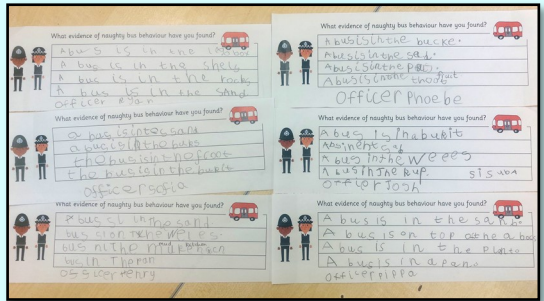 What evidence of naughty bus behaviour have you found?
A bus is in the
A bus is in the shels
A bus is in the rocks
A bus is in the sand
Officer Ryan
What evidence of naughty bus behaviour have you found?
a bus is inte sand
a bus is in the buks
the bus is in the froot
the bus is in the bukit
officer sofia
What evidence of naughty bus behaviour have you found?
A bus si in the sand
bus sion the
bus nithe
bus in The
officer Henry
What evidence of naughty bus behaviour have you found?
A bus is in the bucke.
A bus is in the sad.
A bus is in the
A bus is in the fruit
Officer Phoebe
What evidence of naughty bus behaviour have you found?
A bus is in a bukit
A bus in the weees
A bus in the
officer Josh
What evidence of naughty bus behaviour have you found?
A bus is in the sand.
A bus is on top of the a boo
A bus is in the plants
A bus is in a pan.
officer pippa